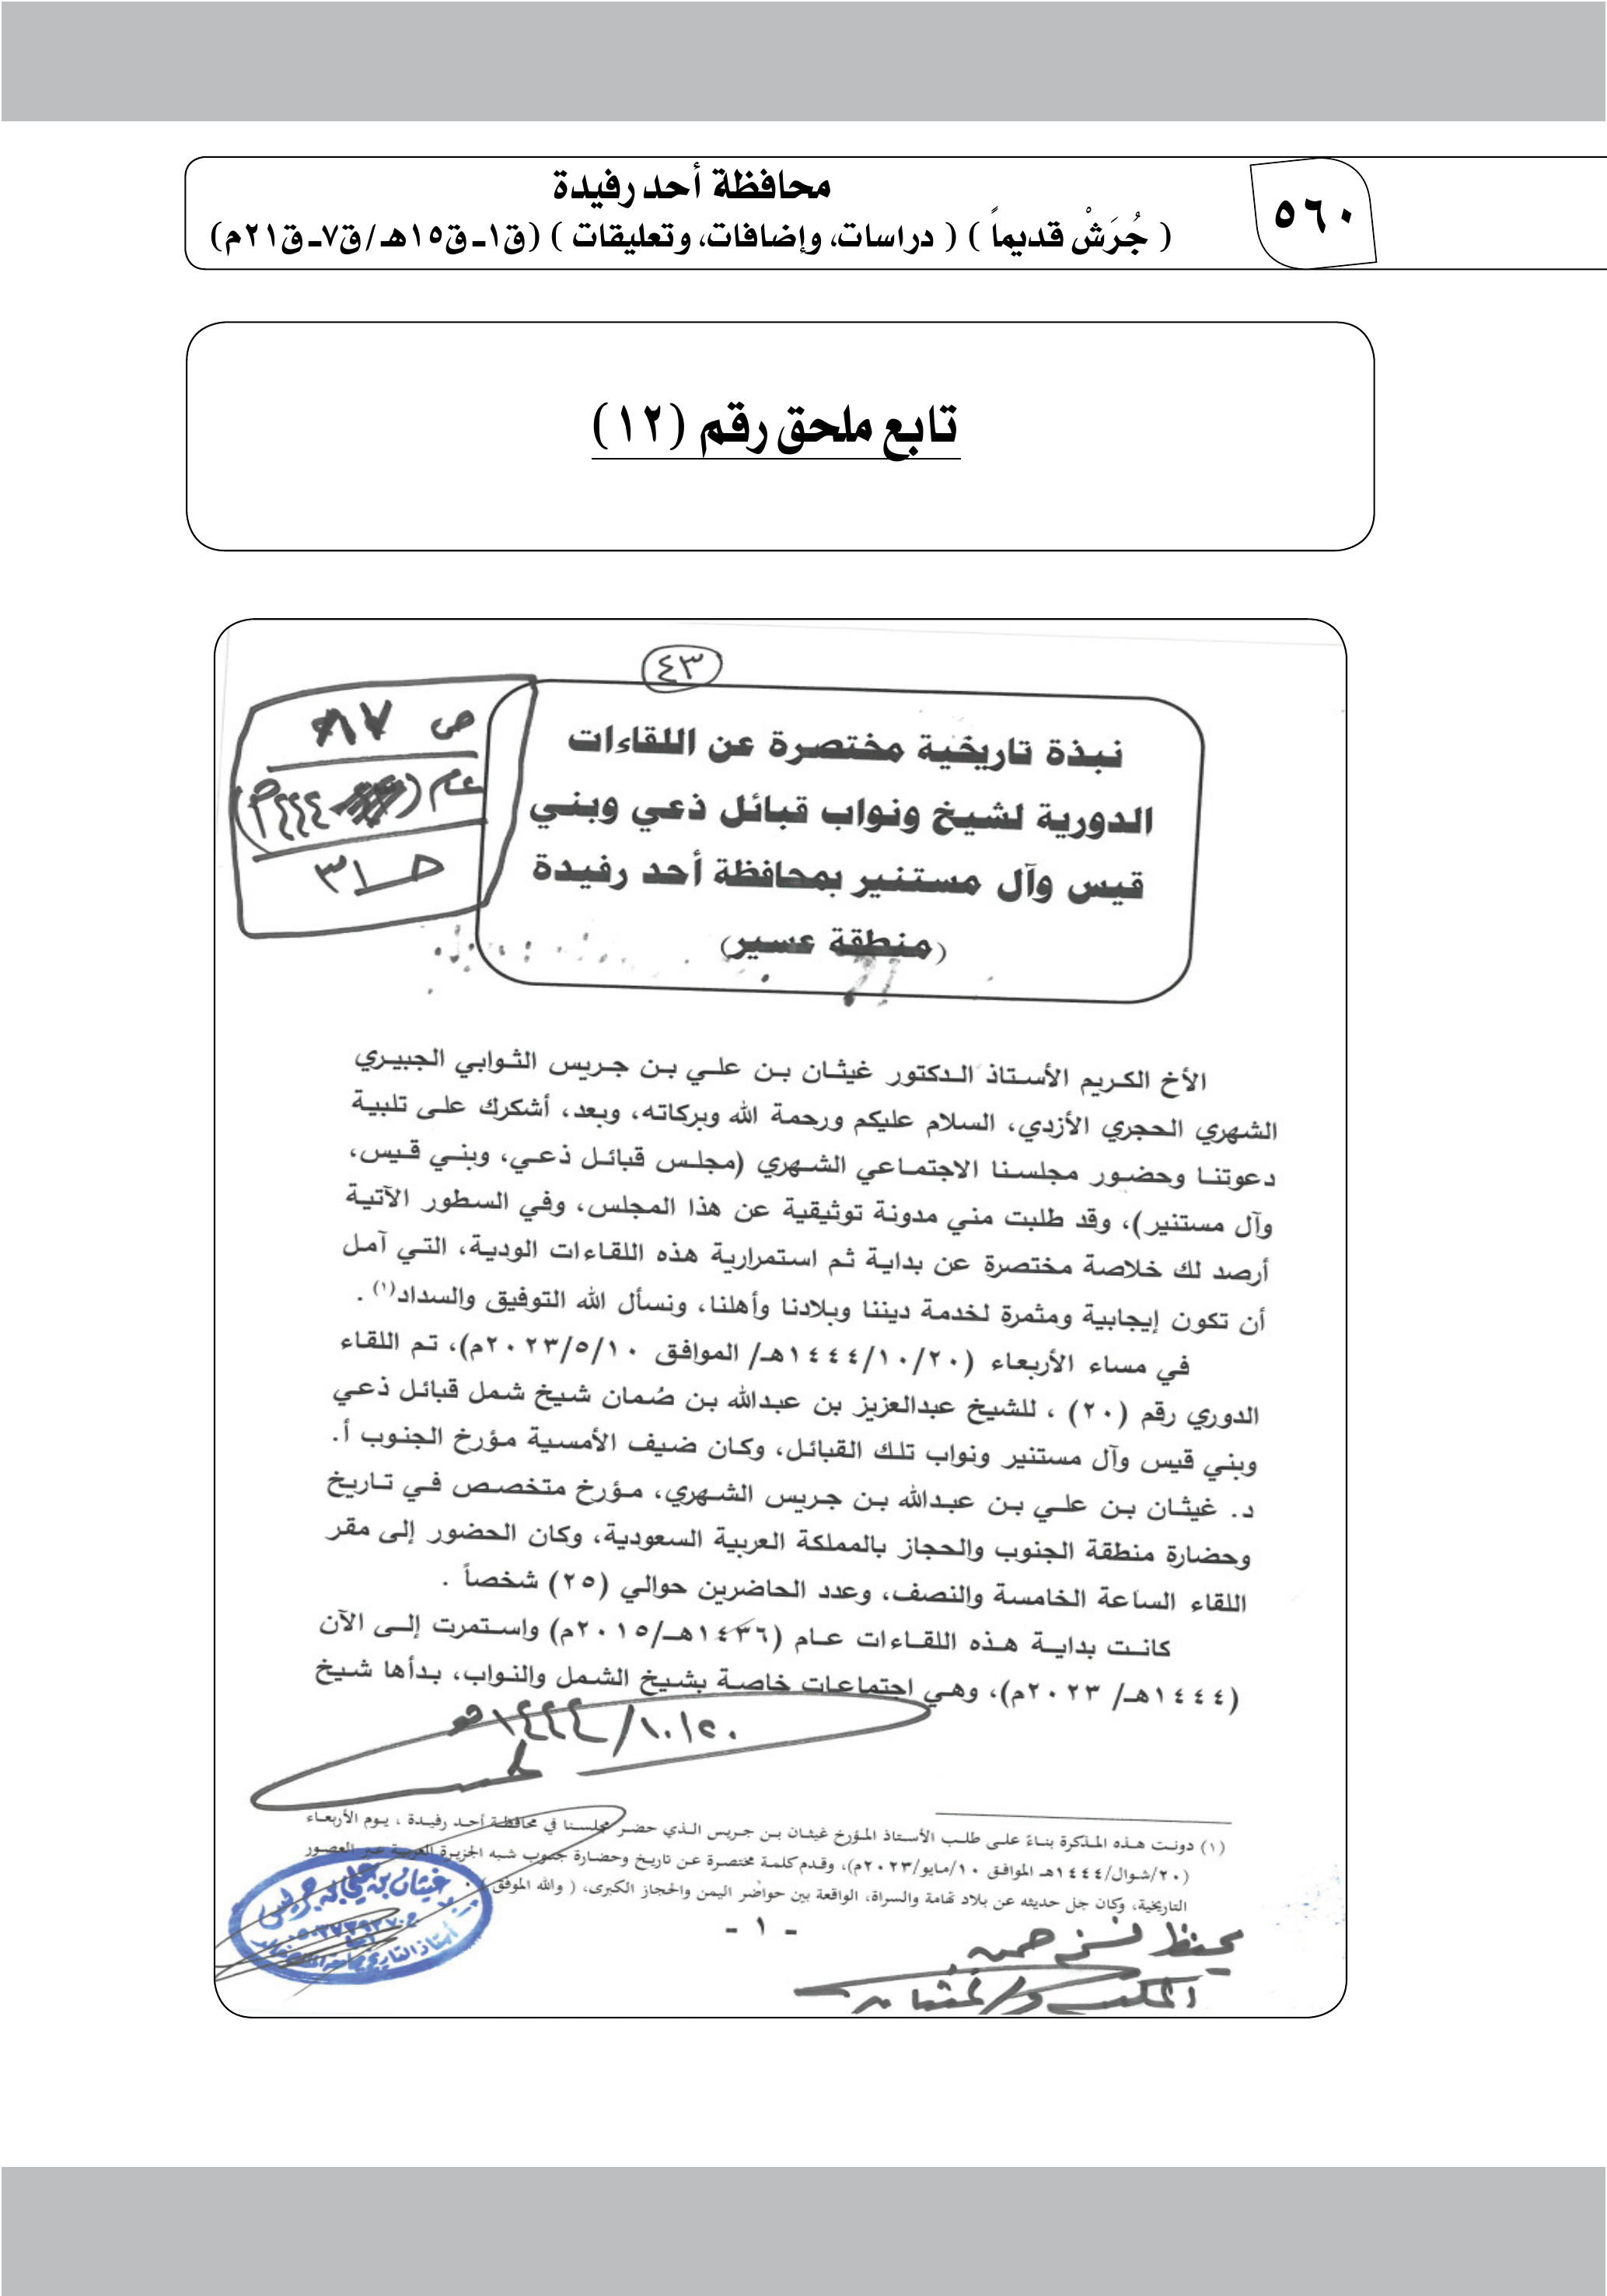 محافظة أحد رفيدة
( جُرَشْ قديماً ) ( دراسات، وإضافات، وتعليقات ) (ق١ـ ق١٥هـ /ق٧ـ ق٢١م)
٥٦٠
تابع ملحق رقم (١٢)
٤٣
نبذة تاريخية مختصرة عن اللقاءات
الدورية لشيخ ونواب قبائل ذعي وبني
قيس وآل مستنير بمحافظة أحد رفيدة
(منطقة عسير)
ص
عام (١٤٤٤هـ)
الأخ الكريم الأستاذ الدكتور غيثان بن علي بن جريس الثوابي الجبيري
الشهري الحجري الأزدي، السلام عليكم ورحمة الله وبركاته، وبعد، أشكرك على تلبية
دعوتنا وحضور مجلسنا الاجتماعي الشهري (مجلس قبائل ذعي، وبني قيس،
وآل مستنير)، وقد طلبت مني مدونة توثيقية عن هذا المجلس، وفي السطور الآتية
أرصد لك خلاصة مختصرة عن بداية ثم استمرارية هذه اللقاءات الودية، التي آمل
أن تكون إيجابية ومثمرة لخدمة ديننا وبلادنا وأهلنا، ونسأل الله التوفيق والسداد(١) .
في مساء الأربعاء (١٤٤٤/١٠/٢٠هـ/ الموافق ٢٠٢٣/٥/١٠م)، تم اللقاء
الدوري رقم (٢٠) ، للشيخ عبدالعزيز بن عبدالله بن ضُمان شيخ شمل قبائل ذعي
وبني قيس وآل مستنير ونواب تلك القبائل، وكان ضيف الأمسية مؤرخ الجنوب أ.
د. غيثان بن علي بن عبدالله بن جريس الشهري، مؤرخ متخصص في تاريخ
وحضارة منطقة الجنوب والحجاز بالمملكة العربية السعودية، وكان الحضور إلى مقر
اللقاء الساعة الخامسة والنصف، وعدد الحاضرين حوالي (٢٥) شخصاً .
كانت بداية هذه اللقاءات عام (١٤٣٦هـ/٢٠١٥م) واستمرت إلى الآن
(١٤٤٤هـ/ ٢٠٢٣م)، وهي اجتماعات خاصة بشيخ الشمل والنواب، بدأها شيخ
١٤٤٤/١٠/٢٠هـ
(١) دونت هذه المذكرة بناءً على طلب الأستاذ المؤرخ غيثان بن جريس الذي حضر مجلسنا في محافظة أحد رفيدة ، يوم الأربعاء
(٢٠/شوال/١٤٤٤هـ الموافق ١٠/مايو/٢٠٢٣م)، وقدم كلمة مختصرة عن تاريخ وحضارة جنوب شبه الجزيرة العربية عبر العصور
التاريخية، وكان جل حديثه عن بلاد تهامة والسراة، الواقعة بين حواضر اليمن والحجاز الكبرى، ( والله الموفق ) .
- ١ -
غيثان بن علي بن جريس